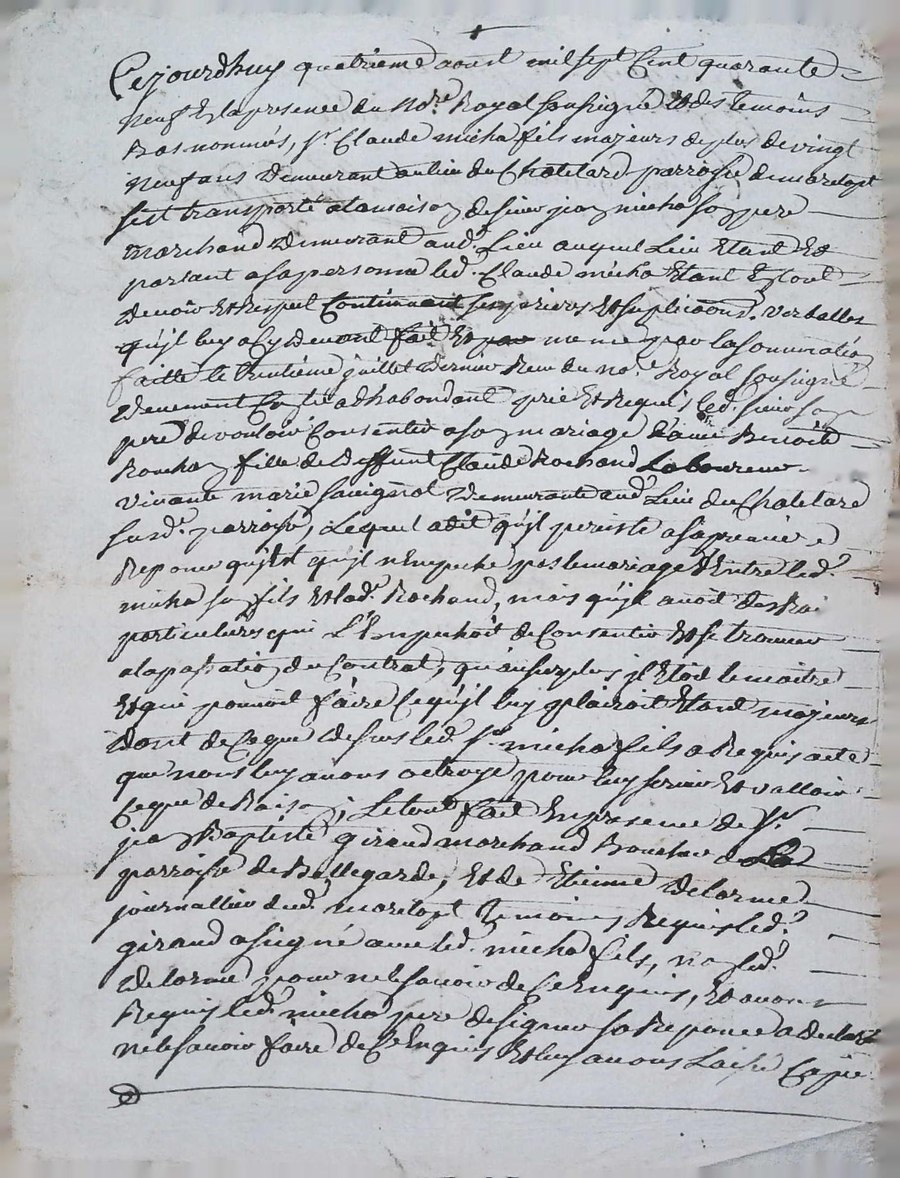 Cejourdhuy quatrieme aoust mil sept Cent quarante
neuf En la presence du No.re Royal soussigné Et des temoins
Bas nommés, s.r Claude micha fils majeurs de plus de vingt
neuf ans Demeurant au lieu du Chatelard parroisse de maretopt
s'est transporté a la maison de sieur jean micha son pere
marchand Demeurant aud. Lieu auquel Lieu Etant Et
parlant a sa personne led. Claude micha Etant En tout
Devoir Et Respect Continuant ses prieres Et suplicaons. Verballes
qu'jl luy a cy Devant fait Et par meme par la sommation
faitte le trentieme juillet Dernier Receu du no.re Royal soussigné
Deuement Con.lé a d'habondant prié Et Requis led. sieur son
pere de vouloir Consentir a son mariage Benoite
Rochan fille de Deffunt Claude Rochand Laboureur
Vivante marie Savignol Demeurante aud. Lieu du Chatelard
susd. parroisse, Lequel a dit qu'jl persiste a sa premiere
Reponce qu'jl n'Empeche pas le mariage D'Entre led.
micha son fils Et lad. Rochand, mais qu'jl avoit Des Rai
particulieres qui L'Empechoit de Consentir Et se trouver
a la passation du Contrat, qu'au surplus jl Etoit le maitre
Et qui pouvoit faire Ce qu'jl luy plairoit Etant majeurs
Dont de Ce que Dessus led. s.r micha fils a Requis acte
que nous luy avons octroyé pour luy servir Et valloir
Ce que de Raison, Le tout fait En presence de s.r
jean Baptiste giraud marchand Boucher de La
parroisse de Bellegarde, Et de Etienne Delorme
journallier dud. maretopt temoins Requis led.
giraud a signé avec led. micha fils, non led.
Delorme pour ne le savoir de Ce Enquis, Et avons
Requis led. micha pere de signer sa Reponce a declaré
ne le savoir faire de Ce Enquis Et luy avons Laissé Copie